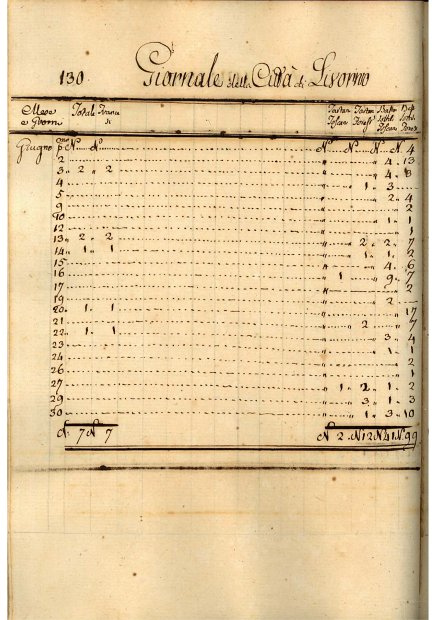 130. Giornale della Città di Livorno
Mese e Giorni Totale Francesi
Giugno pmo N° N° N° N° N° N. 4
2 " " 4 . 13
3 " 2 " 2 " " 4 . 8
4 " " 1 . 3
5 " " 2 . 4
9 " " " 2
10 " " 1 . 1
12 " " " 1
13 " 2 " 2 " " 2 . 2 . 7
14 " 1 " 1 " " 1 . 1 . 2
15 " " 4 . 6
16 " 1 " 9 . 7
17 " " " 2
19 " " 2
20 " 1 " 1 " " " 17
21 " " 2 " 7
22 " 1 " 1 " " 3 . 4
23 " " 1 . 1
24 " " " 2
26 " " " 1
27 " 1 . 2 . 1 . 2
29 " " 3 . 1 . 3
30 " " 1 . 3 . 10
7 N° 7 N° 2 . N. 12 N. 41 N. 99